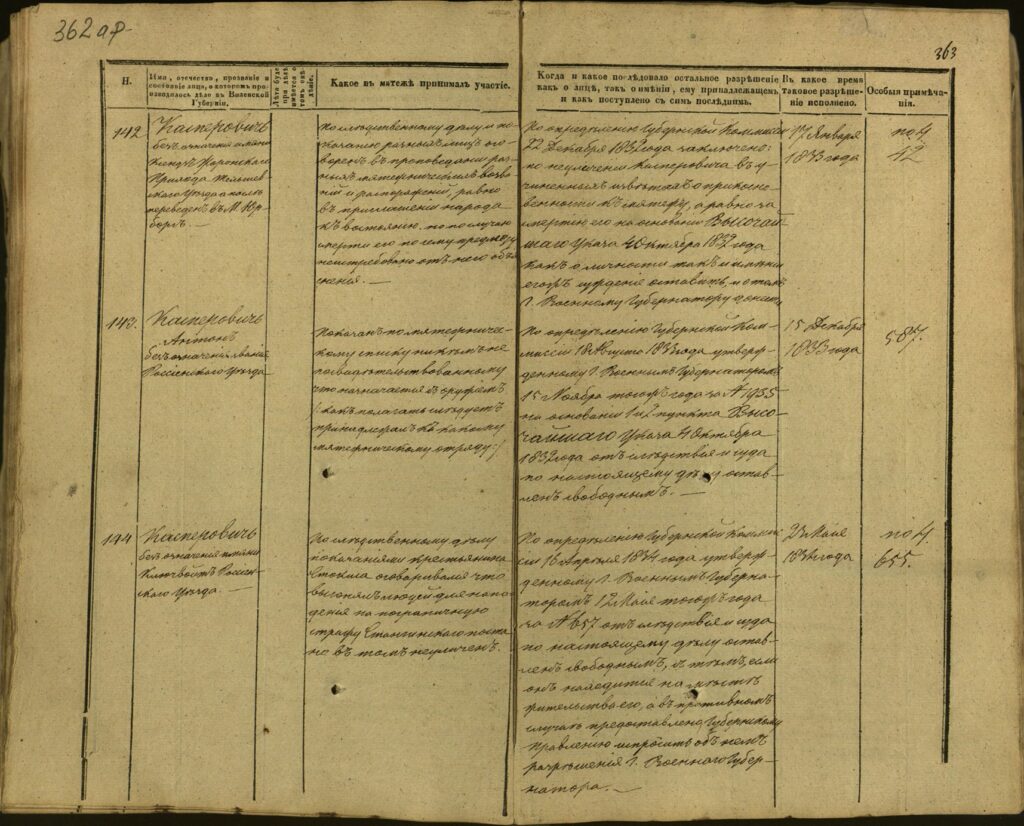 362 ар.
363
Н.
Имя, отечество, прозваніе и
состояніе лица, о которомъ про-
изводилось дѣло въ Виленской
Губерніи.
Лѣта буде
при дѣлѣ
имѣется о
томъ свѣ-
дѣніе.
Какое въ мятежѣ принималъ участіе.
Когда и какое послѣдовало остальное разрѣшеніе
какъ о лицѣ, такъ о имѣніи, ему принадлежащемъ
и какъ поступлено съ симъ послѣднимъ.
Въ какое время
таковое разрѣше-
ніе исполнено.
Особыя примѣча-
нія.
142
Касперовичъ
безъ означенія имени
Ксендзъ
Прихода Тельшев-
скаго Уѣзда а послѣ
переведенъ въ М. Юр-
боргъ.
По слѣдственному дѣлу и по-
казанію разныхъ лицъ ого-
воренъ въ проповѣданіи раз-
ныхъ мятежническихъ воззва-
ній и распоряженій, равно
въ приглашеніи народа
къ возстанію, но по случаю
смерти его по сему предмету
неистребовано отъ него объя-
сненія. —
По опредѣленію Губернской Коммисіи
22 Декабря 1832 года заключено:
по неуличенію Касперовича въ у-
чиненныхъ извѣтахъ о прикосно-
венности къ мятежу, а равно за
смертію его на основаніи Высочай-
шаго Указа 4 Октября 1832 года
какъ о личности такъ и имѣніи
его сужденіе оставить, и о томъ
Г. Военному Губернатору донесть.
17 Января
1833 года
по №
42
143.
Касперовичъ
Антонъ
безъ означенія званія
Россіенскаго Уѣзда
Показанъ по мятежничес-
кому списку никѣмъ не
засвидѣтельствованному
что назначается съ оружіемъ
(какъ полагать слѣдуетъ
принадлежалъ къ какому
мятежническому отряду.)
По опредѣленію Губернской Ком-
мисіи 18 Августа 1833 года утверж-
денному Г. Военнымъ Губернаторомъ
15 Ноября тогожъ года за № 1935
на основаніи 1 и 2 пункта Высо-
чайшаго Указа 4 Октября
1832 года отъ слѣдствія и суда
по настоящему дѣлу остав-
ленъ свободнымъ. —
15 Декабря
1833 года
587.
144
Касперовичъ
безъ означенія имени
Ключвойтъ Россіен-
скаго Уѣзда. —
По слѣдственному дѣлу
показаніями крестьянина
оговаривался что
выгонялъ людей для напа-
денія на пограничную
стражу поста
но въ томъ неуличенъ.
По опредѣленію Губернской Комми-
сіи 16 Апрѣля 1834 года утверж-
денному Г. Военнымъ Губерна-
торомъ 12 Майя тогожъ года
за № 657 отъ слѣдствія и суда
по настоящему дѣлу остав-
ленъ свободнымъ, съ тѣмъ, если
онъ находится на мѣстѣ
жительства его, а въ противномъ
случаѣ предоставлено Губернскому
Правленію испросить объ немъ
разрѣшенія Г. Военнаго Губер-
натора. —
23 Майя
1834 года
по №
655.